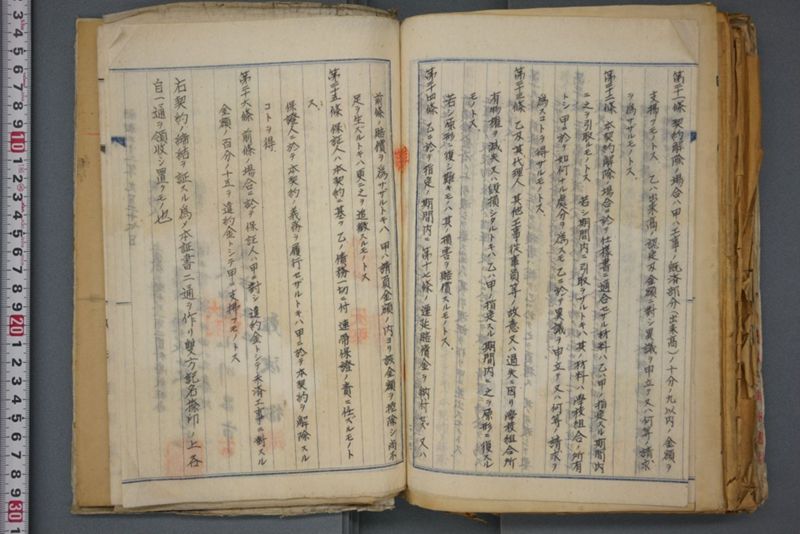 第二十一條 契約解除ノ場合ハ甲ハ工事ノ既済部分(出来高)ノ十分ノ九以内ノ金額ヲ
支拂フモノトス 乙ハ出来高ノ認定及金額ニ對シ異議ヲ申立テ又ハ何等ノ請求
ヲ爲サザルモノトス
第二十二條 本契約解除ノ場合ニ於テ仕様書ニ適合セザル材料ハ乙ハ甲ノ指定スル期間内
ニ之ヲ引取ルモノトス 若シ期間内ニ引取ラザルトキハ其ノ材料ハ學校組合ノ所有
トシ甲ニ於テ如何ナル處分ヲ爲スモ乙ニ於テ異議ヲ申立テ又ハ何等ノ請求ヲ
爲スコトヲ得ザルモノトス
第二十三條 乙及其代理人其他工事從事者等ノ故意又ハ過失ニ因リ學校組合所
有物權ヲ滅失又ハ毀損シタルトキハ乙ハ甲ノ指定スル期間内ニ之ヲ原形ニ復スル
モノトス
若シ原形ニ復シ難キモノハ其ノ損害ヲ賠償スルモノトス
第二十四條 乙ニ於テ指定ノ期間内ニ第十七條ノ遅延賠償金ヲ納付セス又ハ
前條ノ賠償ヲ爲サザルトキハ甲ハ請負金額ノ内ヨリ該金額ヲ控除シ尚不
足ヲ生ズルトキハ更ニ之ヲ追徴スルモノトス
第二十五條 保証人ハ本契約ニ基ク乙ノ債務一切ニ付連帶保證ノ責ニ任ズルモノト
ス
保證人ニ於テ本契約ノ義務ヲ履行セザルトキハ甲ニ於テ本契約ヲ解除スル
コトヲ得
第二十六條 前條ノ場合ニ於テ保証人ハ甲ニ對シ違約金トシテ未済工事ニ對スル
金額ノ百分ノ十五ヲ違約金トシテ甲ニ支拂フモノトス
右契約ノ締結ヲ証スル爲メ本証書二通ヲ作リ雙方記名捺印ノ上各
自一通ヲ領收シ置クモノ也